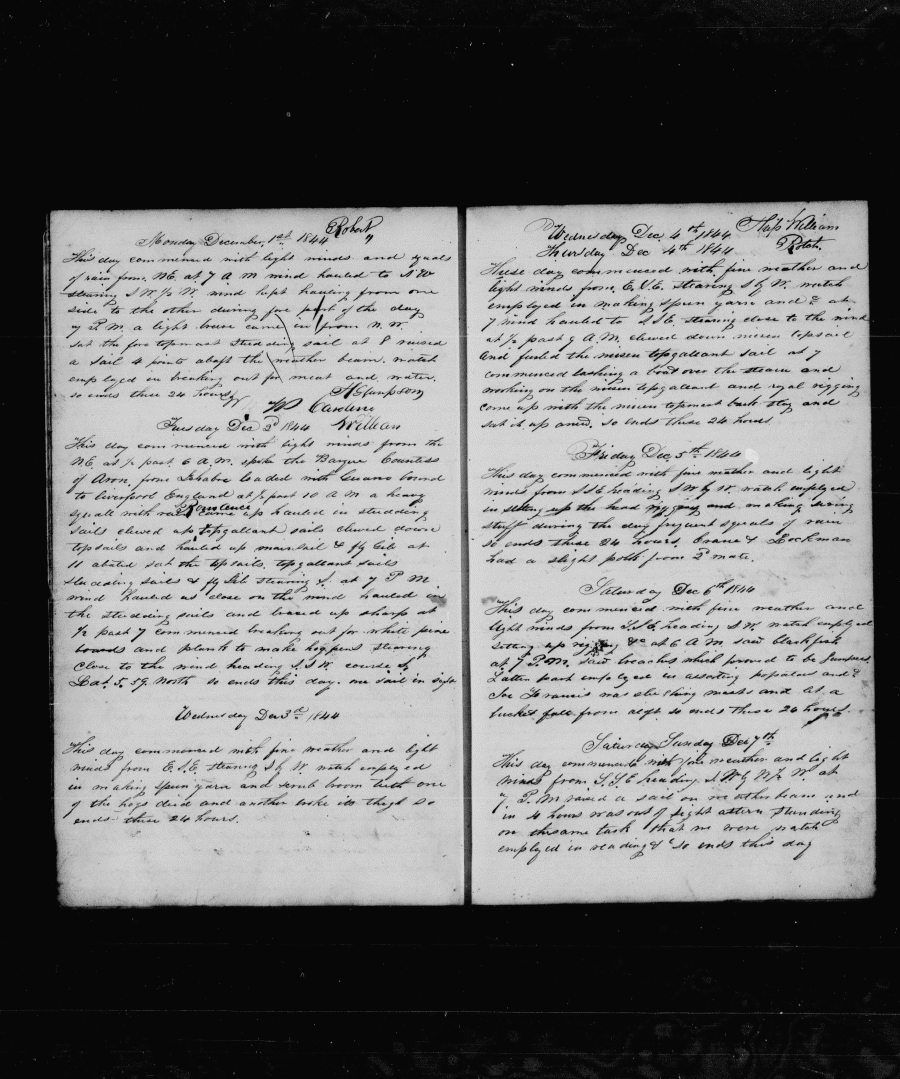 Robert
Monday December, 1st 1844
This day commenced with light winds and squals
of rain from NE. at 7 A M wind hauled to NW
stearing S W 1/2 W. wind kept hauling from one
side to the other during fore part of the day
7 P. M. a light brese came in from N. W.
sat the fore topmast studding sail at 8 raised
a sail 4 points abaft the weather beam. watch
employed in breaking out for meat and water.
so ends these 24 hours
Caroline
Tuesday Dec 2d 1844 William
This day commenced with light winds from the
NE. at 1/2 past 6 A. M. spoke the Barque Countess
of Aron, from loaded with Guano bound
to Liverpool England at 1/2 past 10 A M a heavy
Constance
squall with rain came up hauled in studding
sails clewed up topgallant sails clewed down
topsails and hauled up mainsail & fly Gib at
11 abated sat the topsails, topgallant sails
studding sails & fly Gib stearing S. at 7 P M
wind hauled us close on the wind hauled in
the studding sails and braced up sharp at
1/2 past 7 commenced breaking out for white pine
boards and plank to make hogpens stearing
close to the wind heading S.S.W. course S
Lat. 5. 59. North so ends this day. one sail in sight
Wednesday Dec 3d 1844
This day commenced with fine weather and light
winds from E. S. E stearing S by W. watch employed
in making spun yarn and scrub broom Teeth one
of the hogs died and another broke its thigh so
ends these 24 hours.
William
Wednesday Dec 4th 1844
Thursday Dec 4th 1844
These day commenced with fine weather and
light winds from E. S. E. stearing S by W. watch
employed in making spun yarn and &c at
7 wind hauled to S S E. stearing close to the wind
at 1/2 past 9 A. M. clewed down mizen topsail
and furled the mizen topgallant sail at 7
commenced lashing a boat over the stearn and
working on the mizen topgallant and royal rigging
came up with the mizen topmast back stay and
sat it up . so ends these 24 hours
Friday Dec 5th 1844
This day commenced with fine weather and light
winds from S S E heading S W by W. watch employed
in setting up the head rigging and making
stuff during the day frequent squals of rain
so ends these 24 hours. Crane & Beckman
had a slight from 2d mate.
Saturday Dec 6th 1844
This day commenced with fine weather and
light winds from S. S E heading S W. watch employed
setting up rigging &c at 6 A M. saw blackfish
at 7 P. M. saw breaches which proved to be Jumpers.
Latter part employed in assorting potatoes and &c
Joe Francis was masts and let a
bucket fall from aloft so ends these 24 hours
Saturday Sunday Dec 7th
This day commenced with fine weather and light
winds from S. S E heading S. W by W 1/2 W. at
7. P. M raised a sail on weather beam and
in 4 hours was out of sight astern standing
on thesame tack that we were watch
employed in reading &c so ends this day